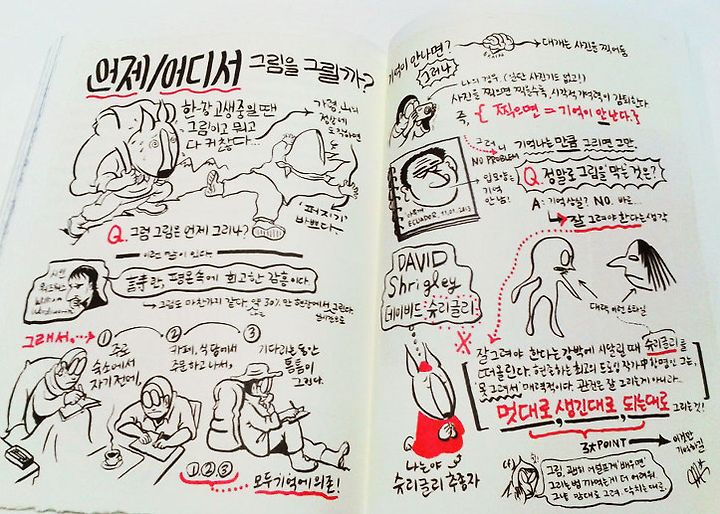 언제/어디서 그림을 그릴까?
한창 고생중일땐
그림이고 뭐고
다 귀찮다...
가령, 산의
정상에
도착하면
"퍼지기"
바쁘다.
Q. 그럼 그림은 언제 그리나?
이런 말이 있다.
시인
워즈워스
William
Wordsworth
란, 평온속에 회고한 감흥이다
→ 그림도 마찬가지 같다. 약 30%만 현장에서 그린다.
그래서.
① 주로
숙소에서
자기전에,
② 카페, 식당에서
주문하고 나서,
③ 기다리는 동안
틈틈이
그린다.
①②③
모두 기억에 의존!
기억이 안나면?
→ 대개는 사진을 찍어둠
그러나
나의 경우, (일단 사진기도 없고!)
사진을 찍으면 찍을수록, 시각적 기억력이 감퇴한다
즉, { 찍으면 = 기억이 안난다. }
그러니 기억나는 만큼 그리면 그만.
NO PROBLEM
입모양은
기억
안남!
ECUADOR, 11.01.2013
Q. 정말로 그림을 막는 것은?
A: 기억상실? NO. 바로...
→ 잘 그려야 한다는 생각
DAVID
Shrigley
데이비드 슈리글리
대략 이런 스타일
잘 그려야 한다는 강박에 시달릴 때 슈리글리를
떠올린다. 현존하는 최고의 드로잉 작가中 한명인 그는,
"못 그려서" 매력적이다. 관건은 잘 그리는게 아니라..
멋대로, 생긴대로, 되는대로 그리는 것!
3大 POINT → 이것만
기억하길
나는야
슈리글리 추종자
그림, 괜히 어설프게 배우면,
그리는 법 까먹는게 더 어려워.
그냥 맘대로 그려. 닥치는대로.